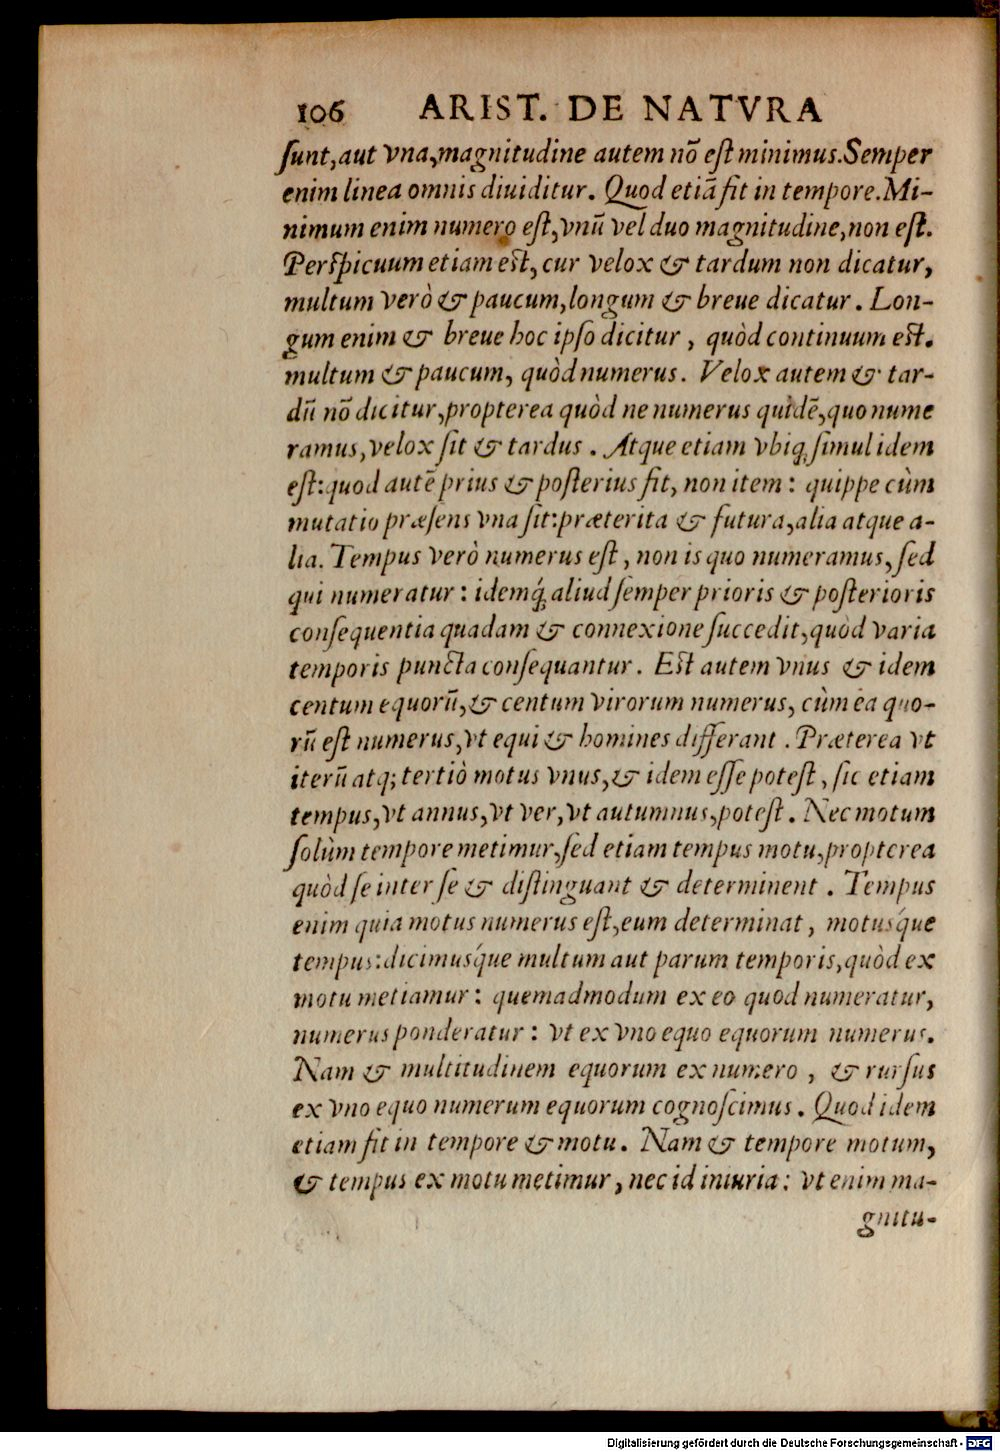 106 ARIST. DE NATVRA
ſunt, aut vna, magnitudine autem nõ eſt minimus. Semper
enim linea omnis diuiditur. Quod etiã fit in tempore. Mi-
nimum enim numero eſt, vnũ vel duo magnitudine, non eſt.
Perſpicuum etiam eſt, cur velox & tardum non dicatur,
multum verò & paucum, longum & breue dicatur. Lon-
gum enim & breue hoc ipſo dicitur, quòd continuum eſt.
multum & paucum, quòd numerus. Velox autem & tar-
dũ nõ dicitur, propterea quòd ne numerus quidẽ, quo nume
ramus, velox ſit & tardus. Atque etiam vbiq; ſimul idem
eſt: quod autẽ prius & poſterius fit, non item: quippe cùm
mutatio præſens vna ſit: præterita & futura, alia atque a-
lia. Tempus verò numerus eſt, non is quo numeramus, ſed
qui numeratur: idemq́; aliud ſemper prioris & poſterioris
conſequentia quadam & connexione ſuccedit, quòd varia
temporis puncta conſequantur. Eſt autem vnus & idem
centum equorũ, & centum virorum numerus, cùm ea quo-
rũ eſt numerus, vt equi & homines differant. Præterea vt
iterũ atq; tertiò motus vnus, & idem eſſe poteſt, ſic etiam
tempus, vt annus, vt ver, vt autumnus, poteſt. Nec motum
ſolùm tempore metimur, ſed etiam tempus motu, propterea
quòd ſe inter ſe & diſtinguant & determinent. Tempus
enim quia motus numerus eſt, eum determinat, motusq́ue
tempus: dicimusq́ue multum aut parum temporis, quòd ex
motu metiamur: quemadmodum ex eo quod numeratur,
numerus ponderatur: vt ex vno equo equorum numerus.
Nam & multitudinem equorum ex numero, & rurſus
ex vno equo numerum equorum cognoſcimus. Quod idem
etiam fit in tempore & motu. Nam & tempore motum,
& tempus ex motu metimur, nec id iniuria: vt enim ma-
gnitu-
Digitalisierung gefördert durch die Deutsche Forschungsgemeinschaft - DFG